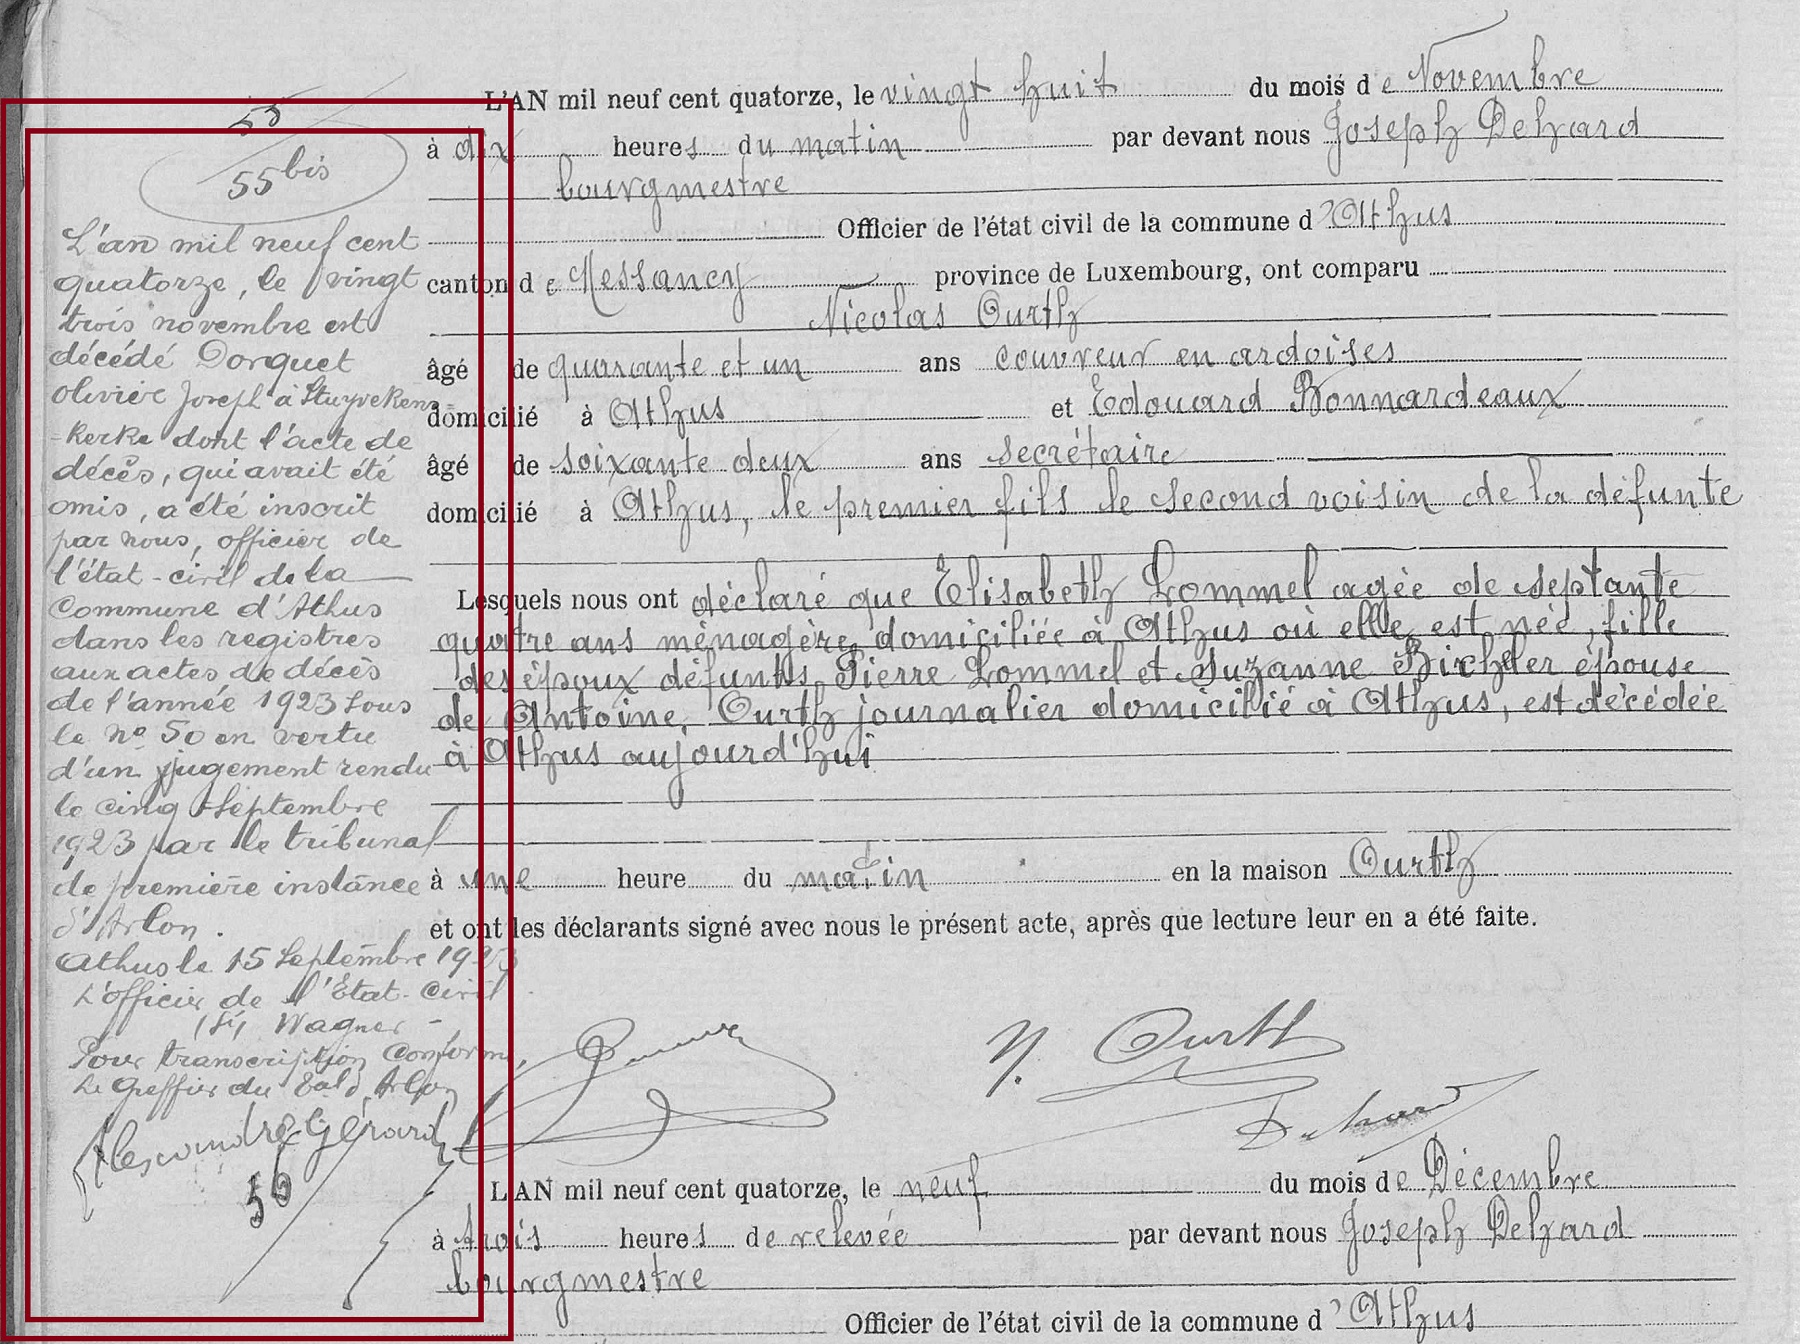 55
55 bis
L'an mil neuf cent
quatorze, le vingt
trois novembre est
décédé Dorquet
olivier Joseph à Stuyvekens-
-kerke dont l'acte de
décès, qui avait été
omis, a été inscrit
par nous, officier de
l'état-civil de la
Commune d'Athus
dans les registres
aux actes de décès
de l'année 1923 sous
le no 50 en vertu
d'un jugement rendu
le cinq Septembre
1923 par le tribunal
de première instance
d'Arlon.
Athus le 15 Septembre 1923
L'officier de l'Etat-Civil
(si) Wagner -
Pour transcription Conforme,
Le Greffier du Arlon
Gérard
L'AN mil neuf cent quatorze, le vingt huit du mois de Novembre
à dix heures du matin par devant nous Joseph Dehard
bourgmestre
Officier de l'état civil de la commune d'Athus
canton de Messancy province de Luxembourg, ont comparu
Nicolas Ourth
âgé de quarante et un ans couvreur en ardoises
domicilié à Athus et Edouard Bonnardeaux
âgé de soixante deux ans secrétaire
domicilié à Athus, le premier fils le second voisin de la défunte
Lesquels nous ont déclaré que Elisabeth Lommel agée de septante
quatre ans ménagère domiciliée à Athus où elle est née, fille
des époux défunts Pierre Lommel et Suzanne épouse
de Antoine Ourth journalier domicilié à Athus, est décédée
à Athus aujourd'hui
à une heure du matin en la maison Ourth
et ont les déclarants signé avec nous le présent acte, après que lecture leur en a été faite.
N. Ourth
Dehard
56
L'AN mil neuf cent quatorze, le neuf du mois de Décembre
à trois heures de relevée par devant nous Joseph Dehard
bourgmestre
Officier de l'état civil de la commune d'Athus